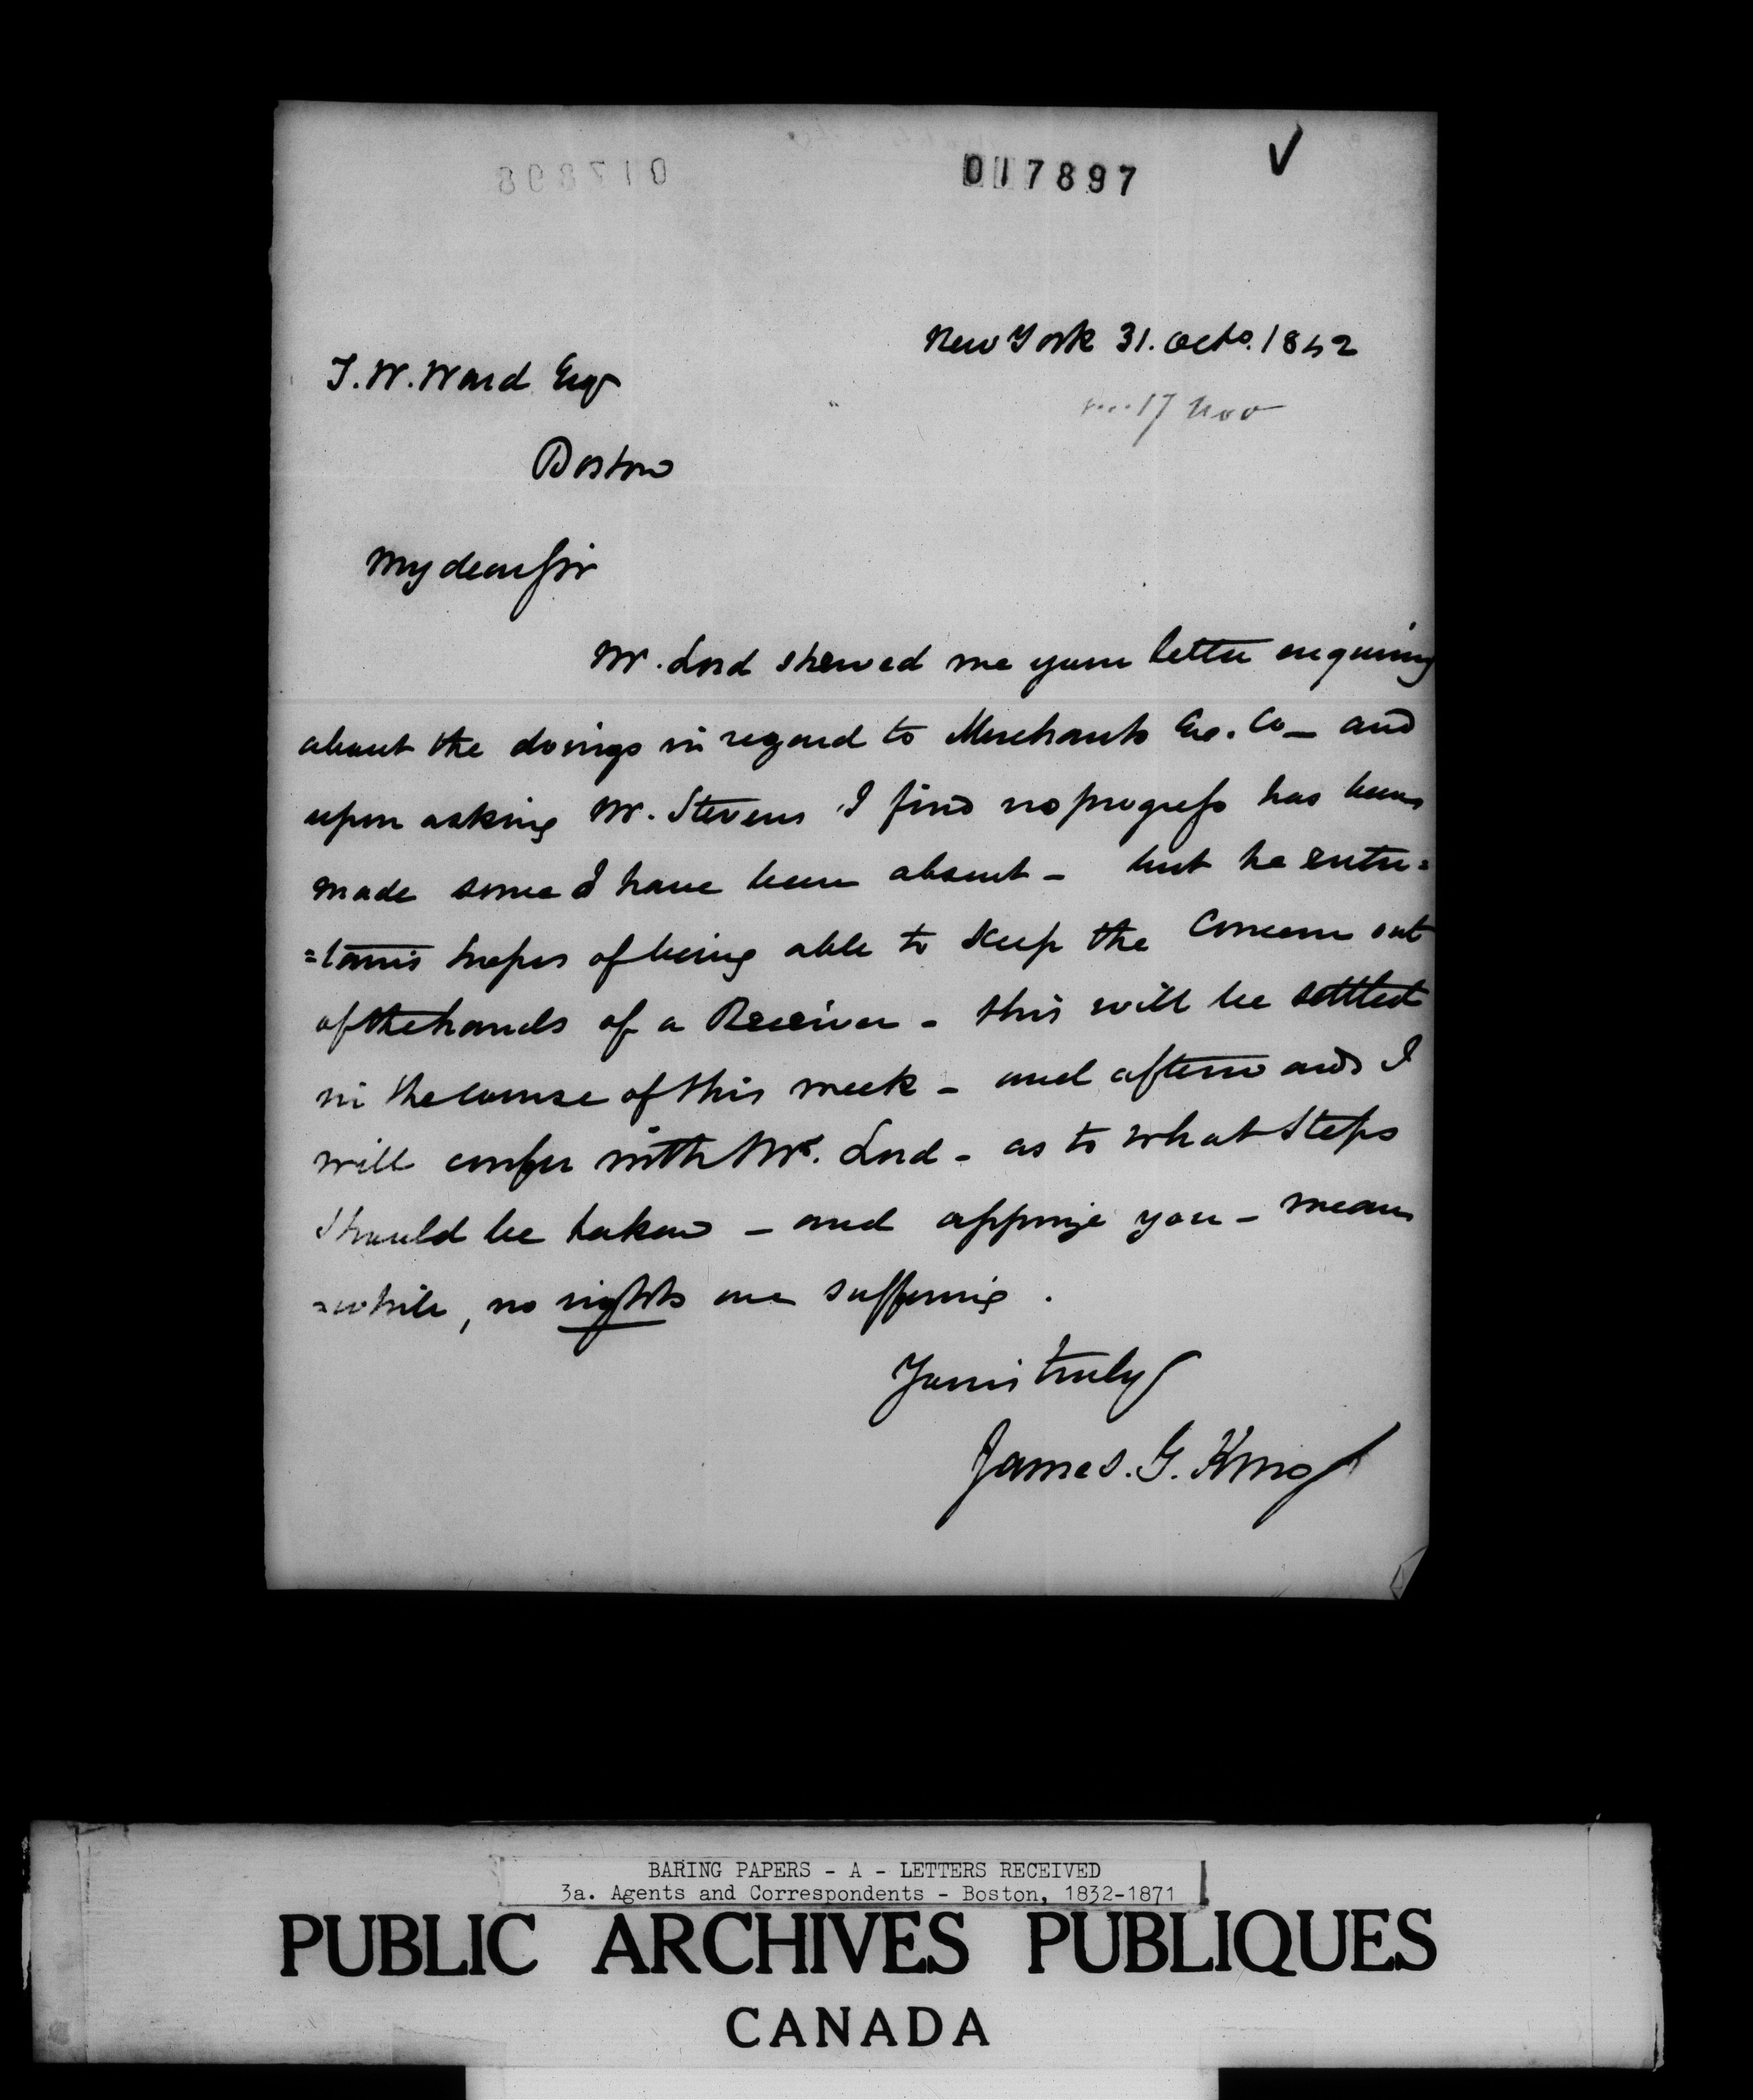 017897
New York 31. Octo. 1842
T. W. Ward Esqr
17 Nov
Boston
My dear Sir
Mr. Lord shewed me your letter enquiring
about the doings in regard to Merchants Ex. Co — and
upon asking Mr. Stevens I find no progress has been
made since I have been absent — but he enter=
=tains hopes of being able to keep the Concern out
of the hands of a Receiver — this will be settled
in the course of this week — and afterwards I
will confer with Mr. Lord — as to what steps
should be taken — and apprize you — mean
=while, no rights are suffering.
Yours truly
James. G. King
BARING PAPERS - A - LETTERS RECEIVED
3a. Agents and Correspondents - Boston, 1832-1871
PUBLIC ARCHIVES PUBLIQUES
CANADA